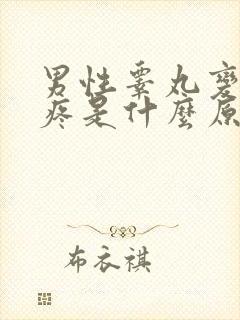 男性睾丸
疼是什麼原
布衣祺